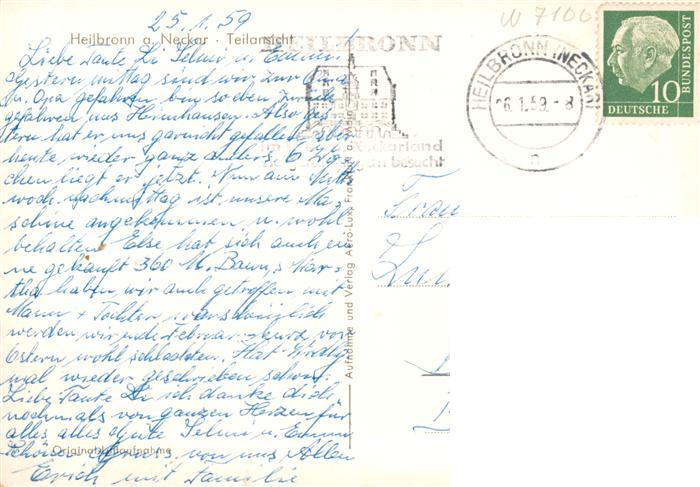 25.1.59
W 7100
Heilbronn a. Neckar · Teilansicht
HEILBRONN
Liebe Tante Di Selmi u. Emmi
Gestern mittag sind wir zur Oma
u. Opa gefahren bin soeben zurück
gefahren aus Also ges
tern hat er uns garnicht gefallen aber
heute wieder ganz anders, 6 Wo
chen liegt er jetzt. Nun am Mitt
woch nachmittag ist unsere Ma
schine angekommen u. wohl
behalten Else hat sich auch ei
ne gekauft 360 M. Mar
tha haben wir auch getroffen mit
Mann + Tochter
werden wir ende Februar kurz vor
Ostern wohl schlachten. Hat
mal wieder geschrieben schon.
Liebe Tante Di ich danke dich
nochmals von ganzen Herzen für
alles alles Gute Selmi u. Emmi
Schöne Grüsse von uns Allen
Originalaufnahme
Erich mit Familie
im Neckarland
besucht
HEILBRONN (NECKAR)
26.1.59.-8
n
10
DEUTSCHE
BUNDESPOST
Aufnahme und Verlag Aero-Lux, Frankfurt a. Main
Frau